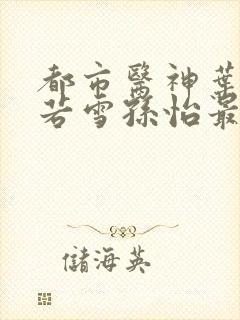 都市醫神葉
若雪孫怡最
儲海英